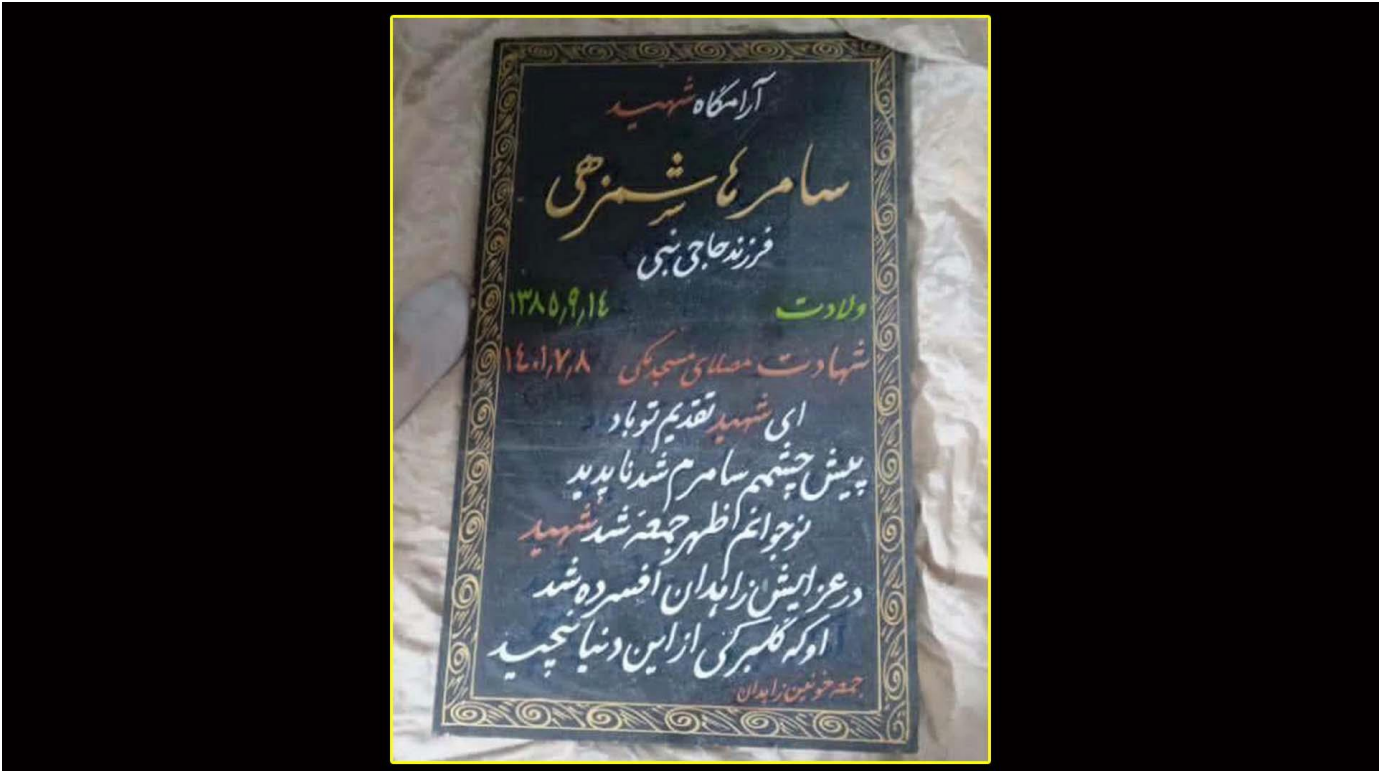 آرامگاه شهید
سامر هاشمزهی
فرزند حاجی نبی
ولادت ۱۳۸۵٫۹٫۱٤
شهادت مصلای مسجد مکی ۱٤۰۱٫۷٫۸
ای شهید تقدیم تو باد
پیش چشمم سامرم شد ناپدید
نوجوانم ظهر جمعه شد شهید
در عزایش زاهدان افسرده شد
او که گلبرگی از این دنیا نچید
جمعه خونین زاهدان